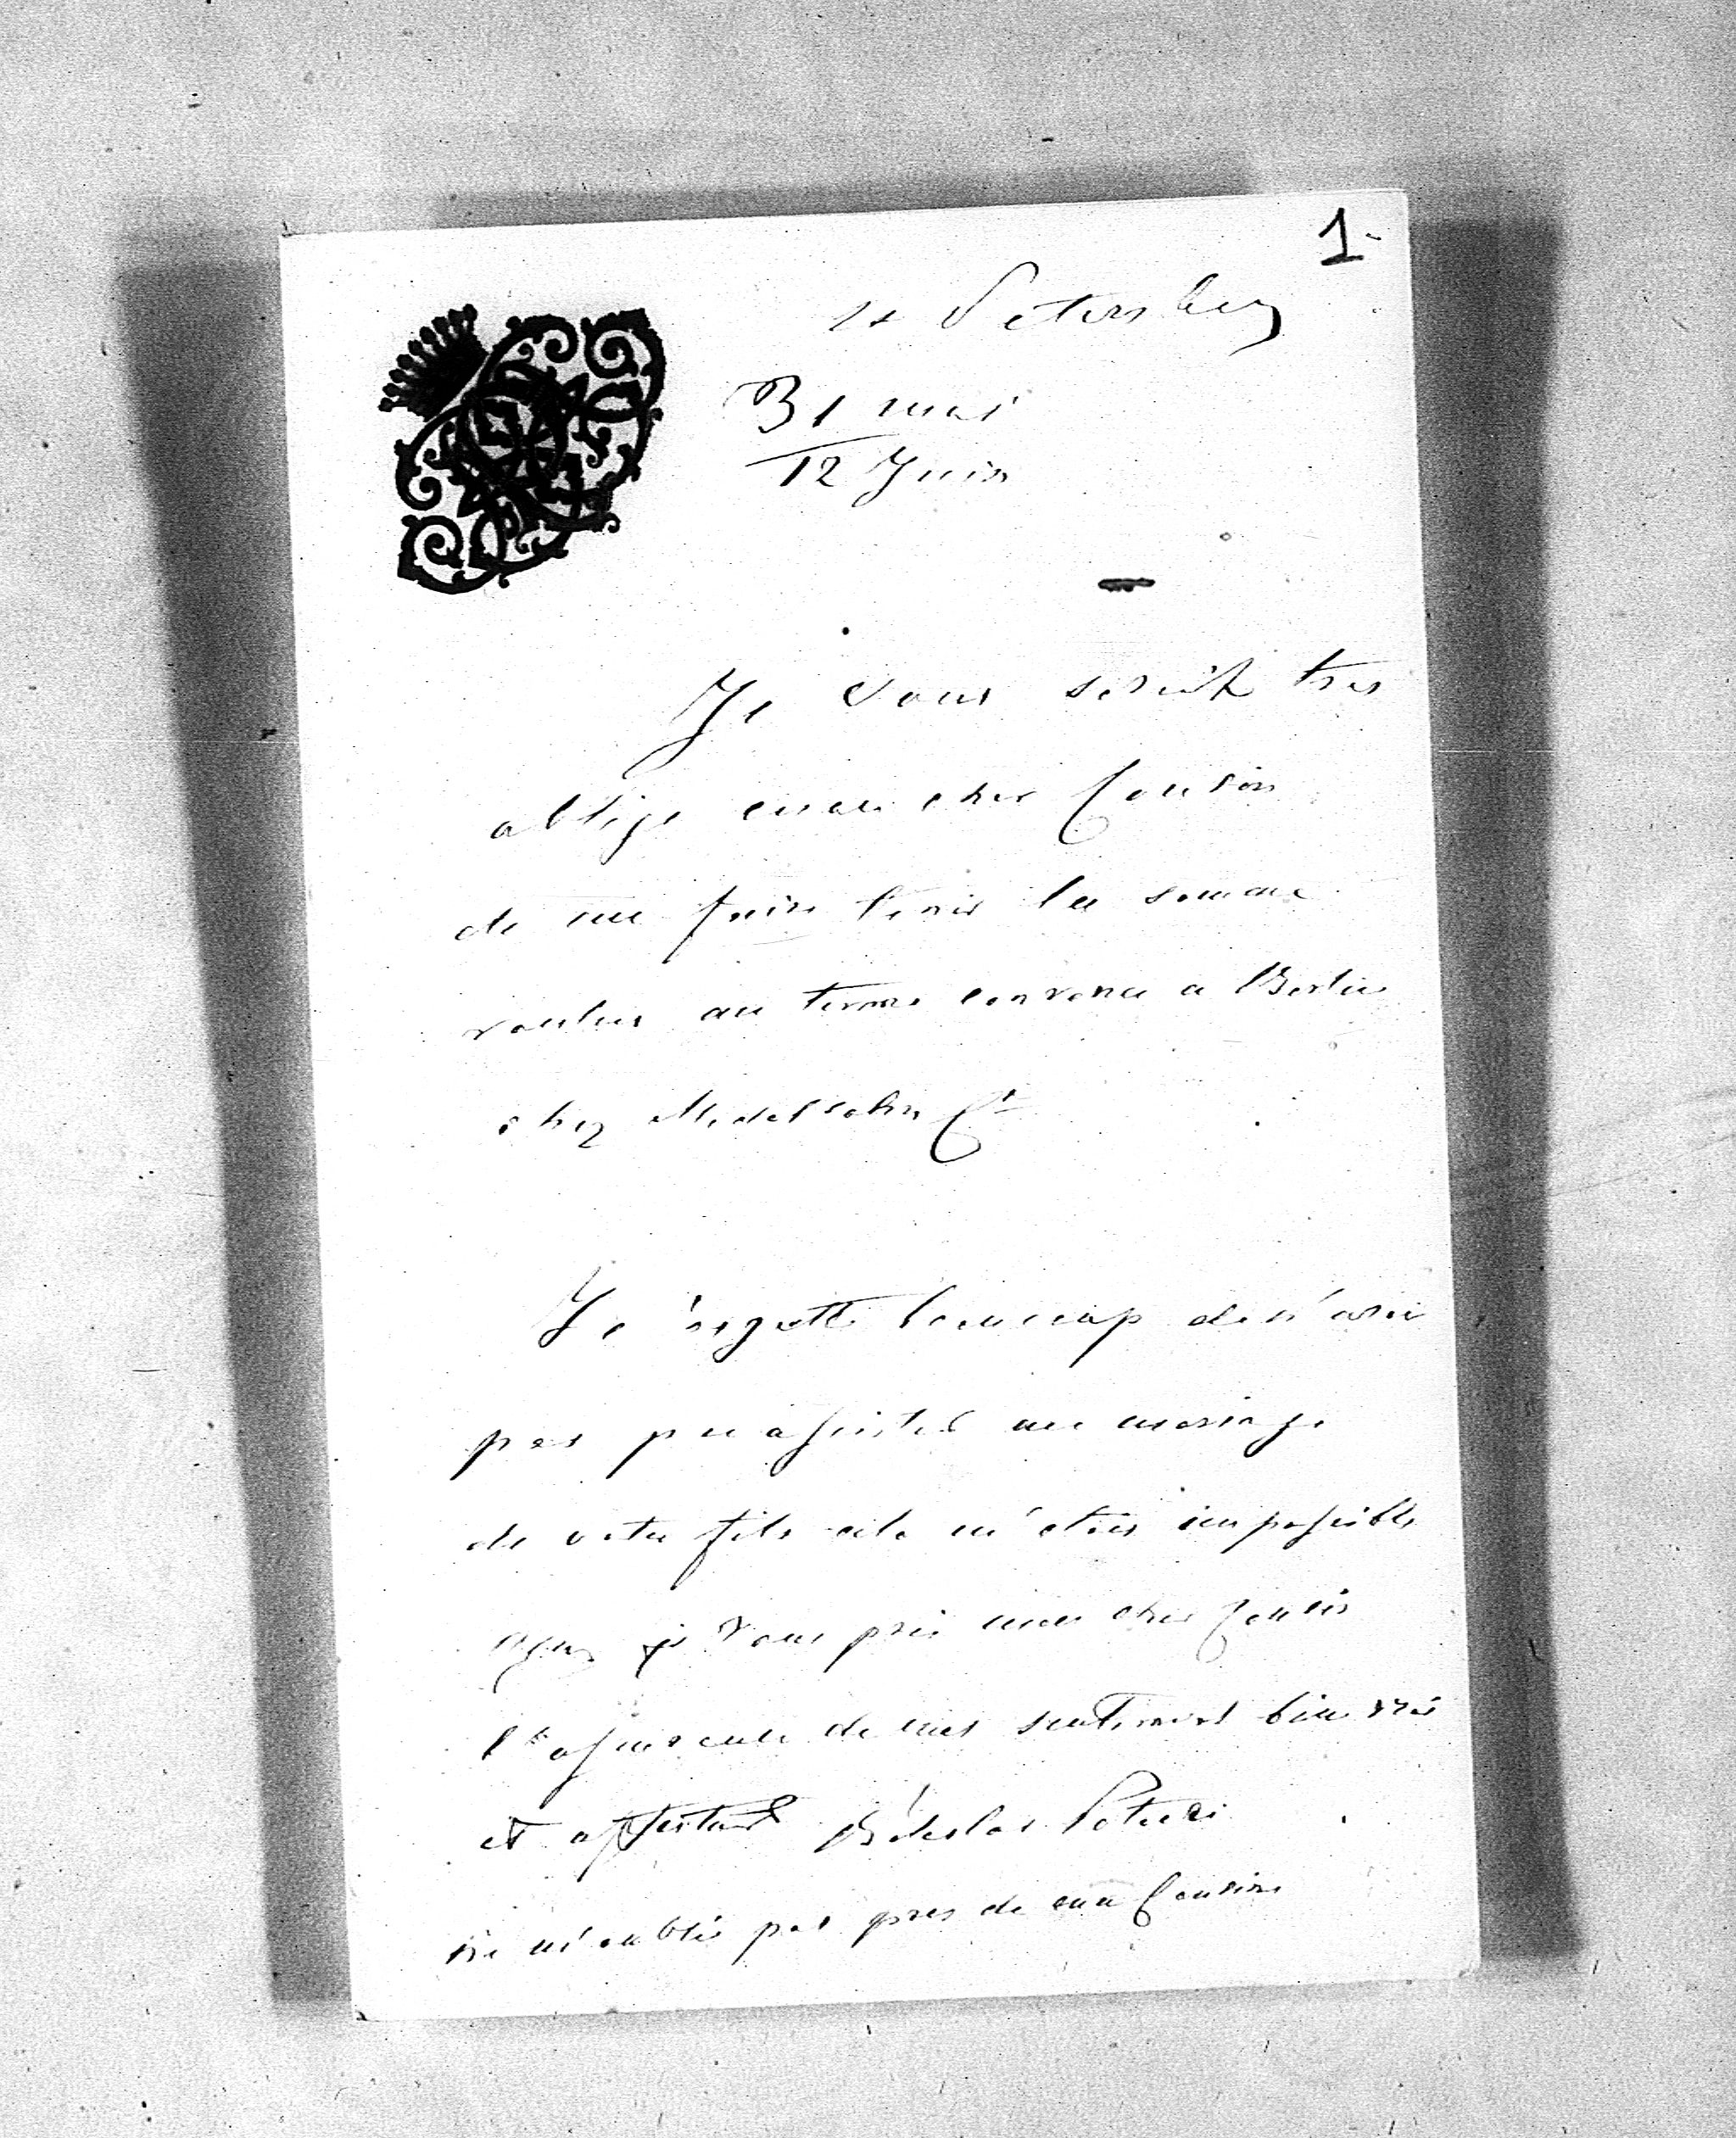 1-
St Petersburg
31 mai
12 Juin
Je vous serait tres
oblige mon cher Cousin
de me faire tenir la somme
voulue au terme convenu a Berlin
chez Mendelsohn Cie
Je regrette beaucoup de n'avoir
pas pu assister au mariage
de votre fils cela m'etais impossible
Agrez je vous prie mon cher Cousin
l'assurence de mes sentiments bien vrai
et affectueux Boleslas Potocki
ne m'oublié pas pres de ma Cousine